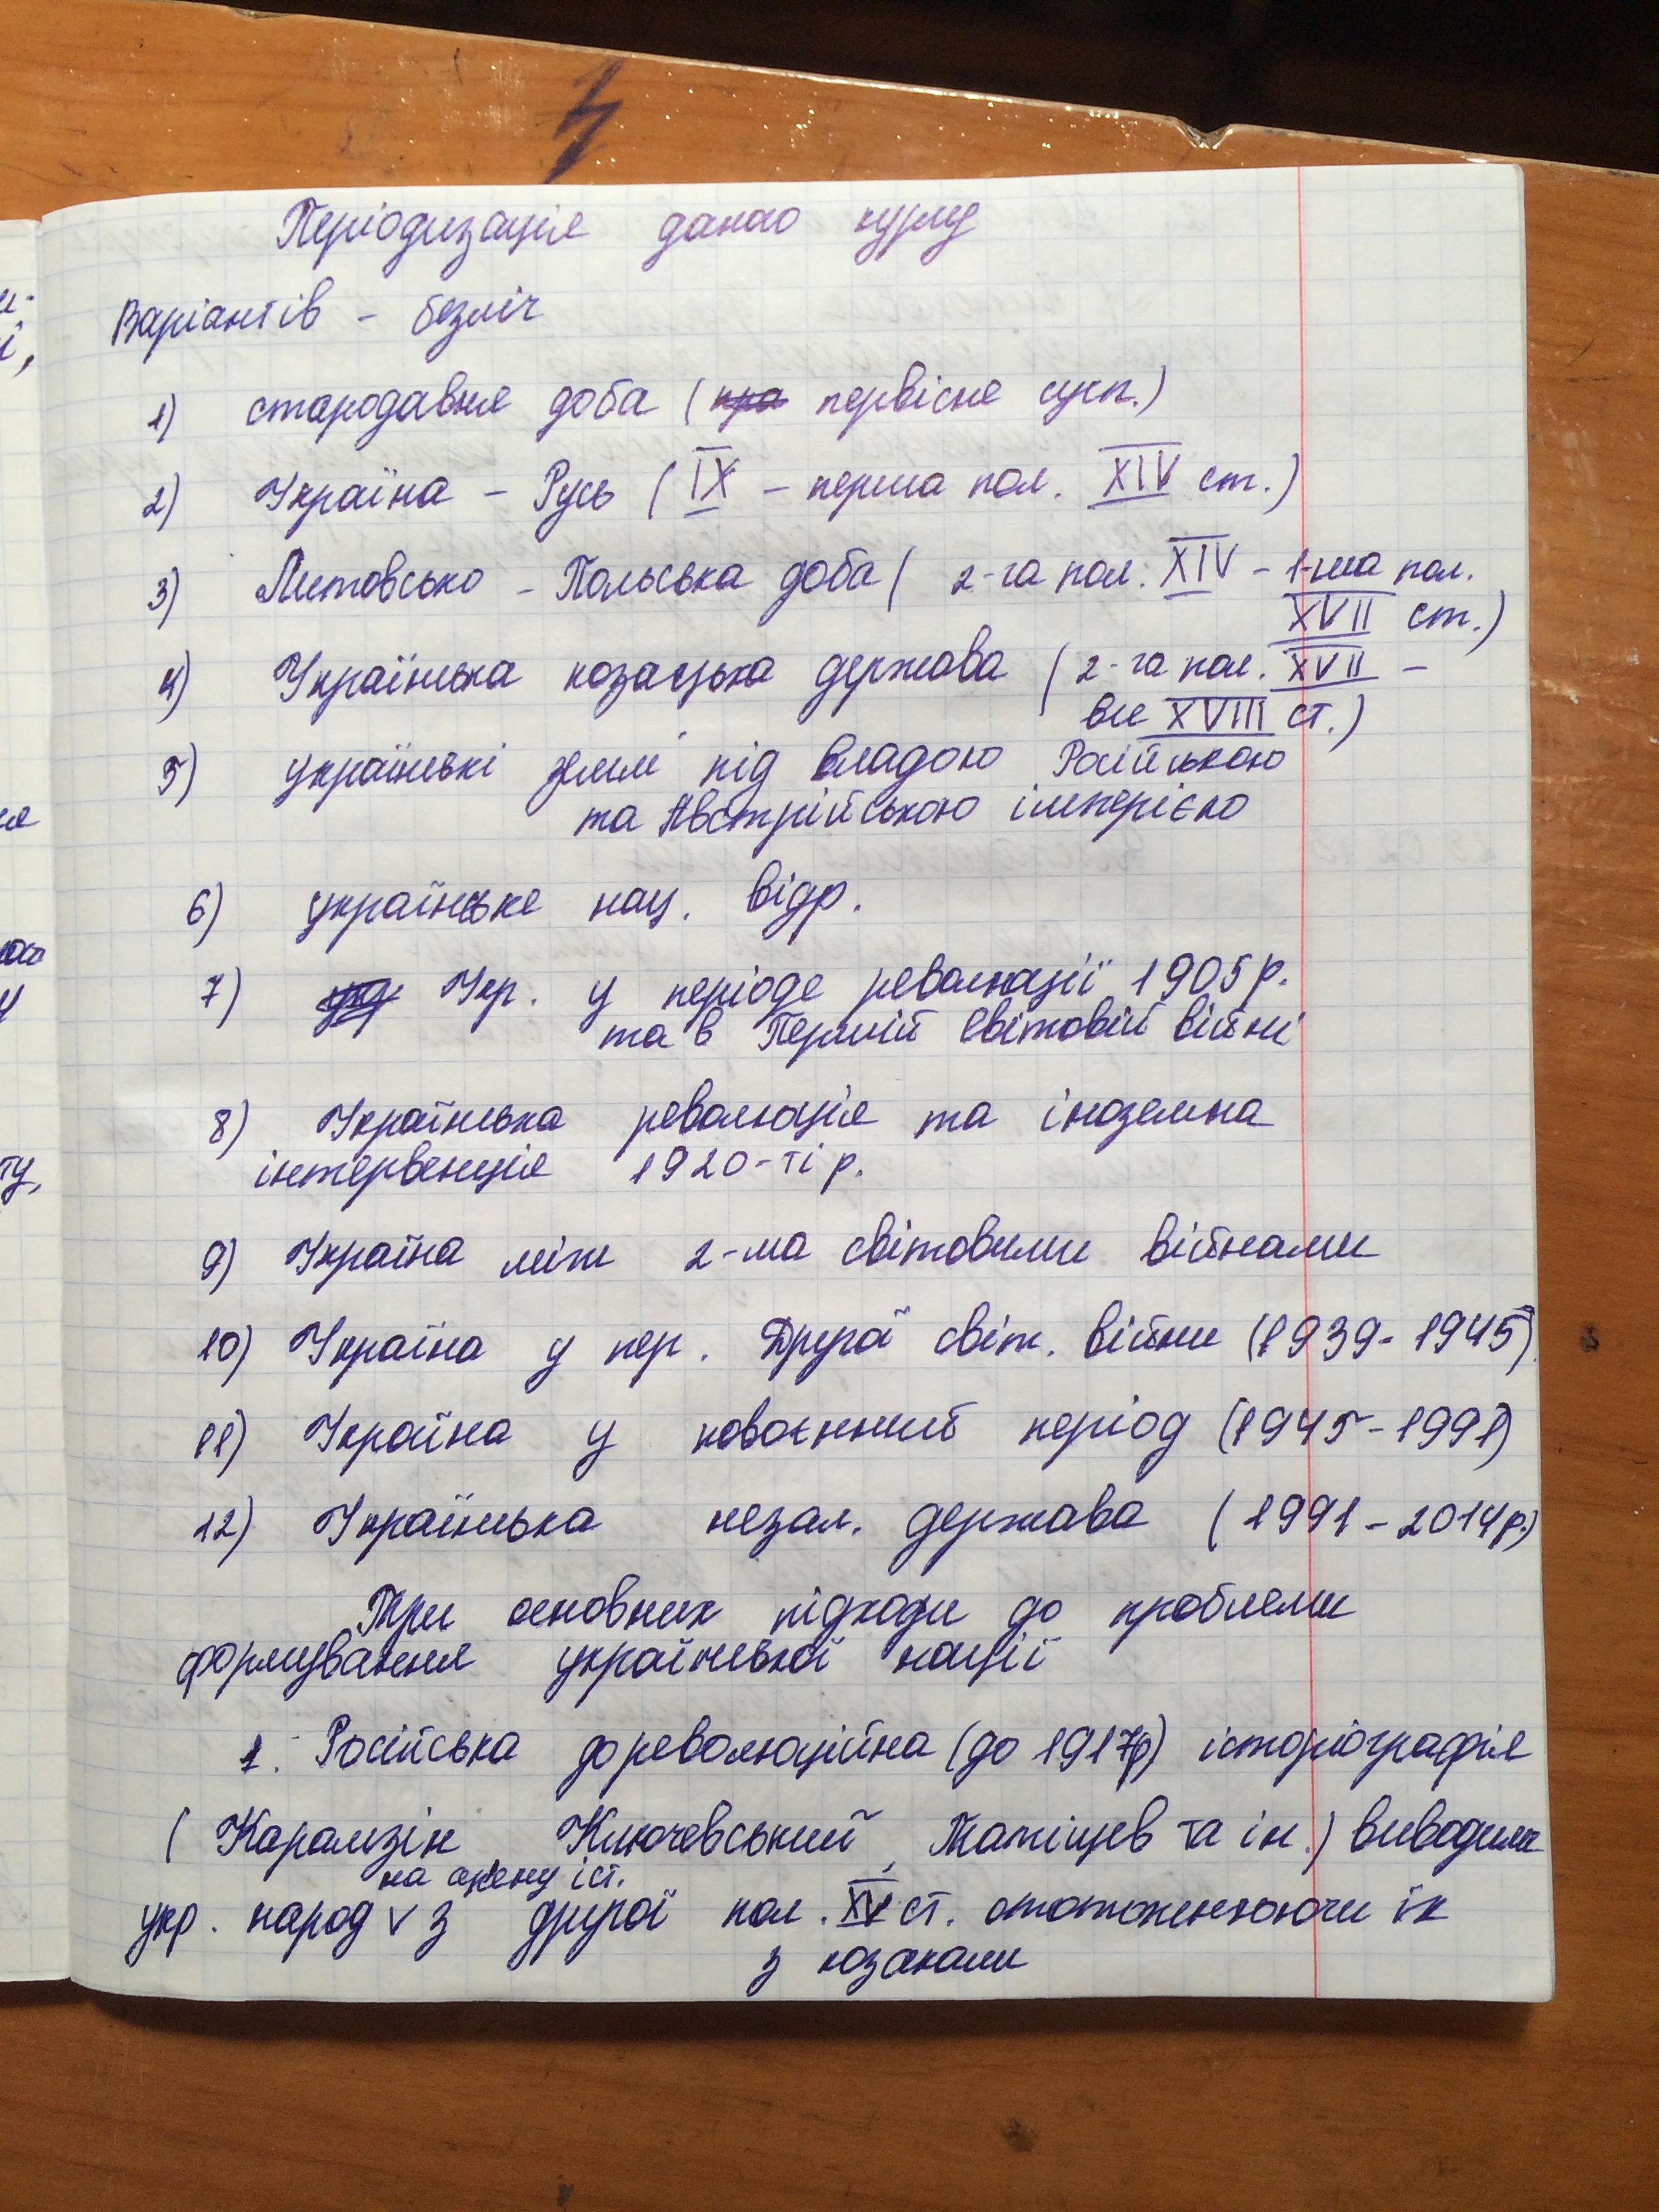 Періодизація даного курсу
Варіантів - безліч
1) стародавня доба (пра первісне сусп.)
2) Україна - Русь (IX - перша пол. XIV ст.)
3) Литовсько - Польська доба ( 2-га пол. XIV - 1-ша пол.
XVII ст.)
4) Українська козацька держава ( 2-га пол. XVII -
все XVIII ст.)
5) українські землі під владою Російською
та Австрійською імперією
6) українське нац. відр.
7) Укр. у періоде революції 1905 р.
та в Першій світовій війні
8) Українська революція та іноземна
інтервенція 1920-ті р.
9) Україна між 2-ма світовими війнами
10) Україна у пер. Другої світ. війни (1939-1945)
11) Україна у повоєнний період (1945-1991)
12) Українська незал. держава (1991-2014р.)
Три основних підходи до проблеми
формування української нації
1. Російська дореволюційна (до 1917р) історіографія
( Карамзін Ключевський, Татіщев та ін.) виводили
на арену іст.
укр. народ v з другої пол. XV ст. ототожнюючи їх
з козаками